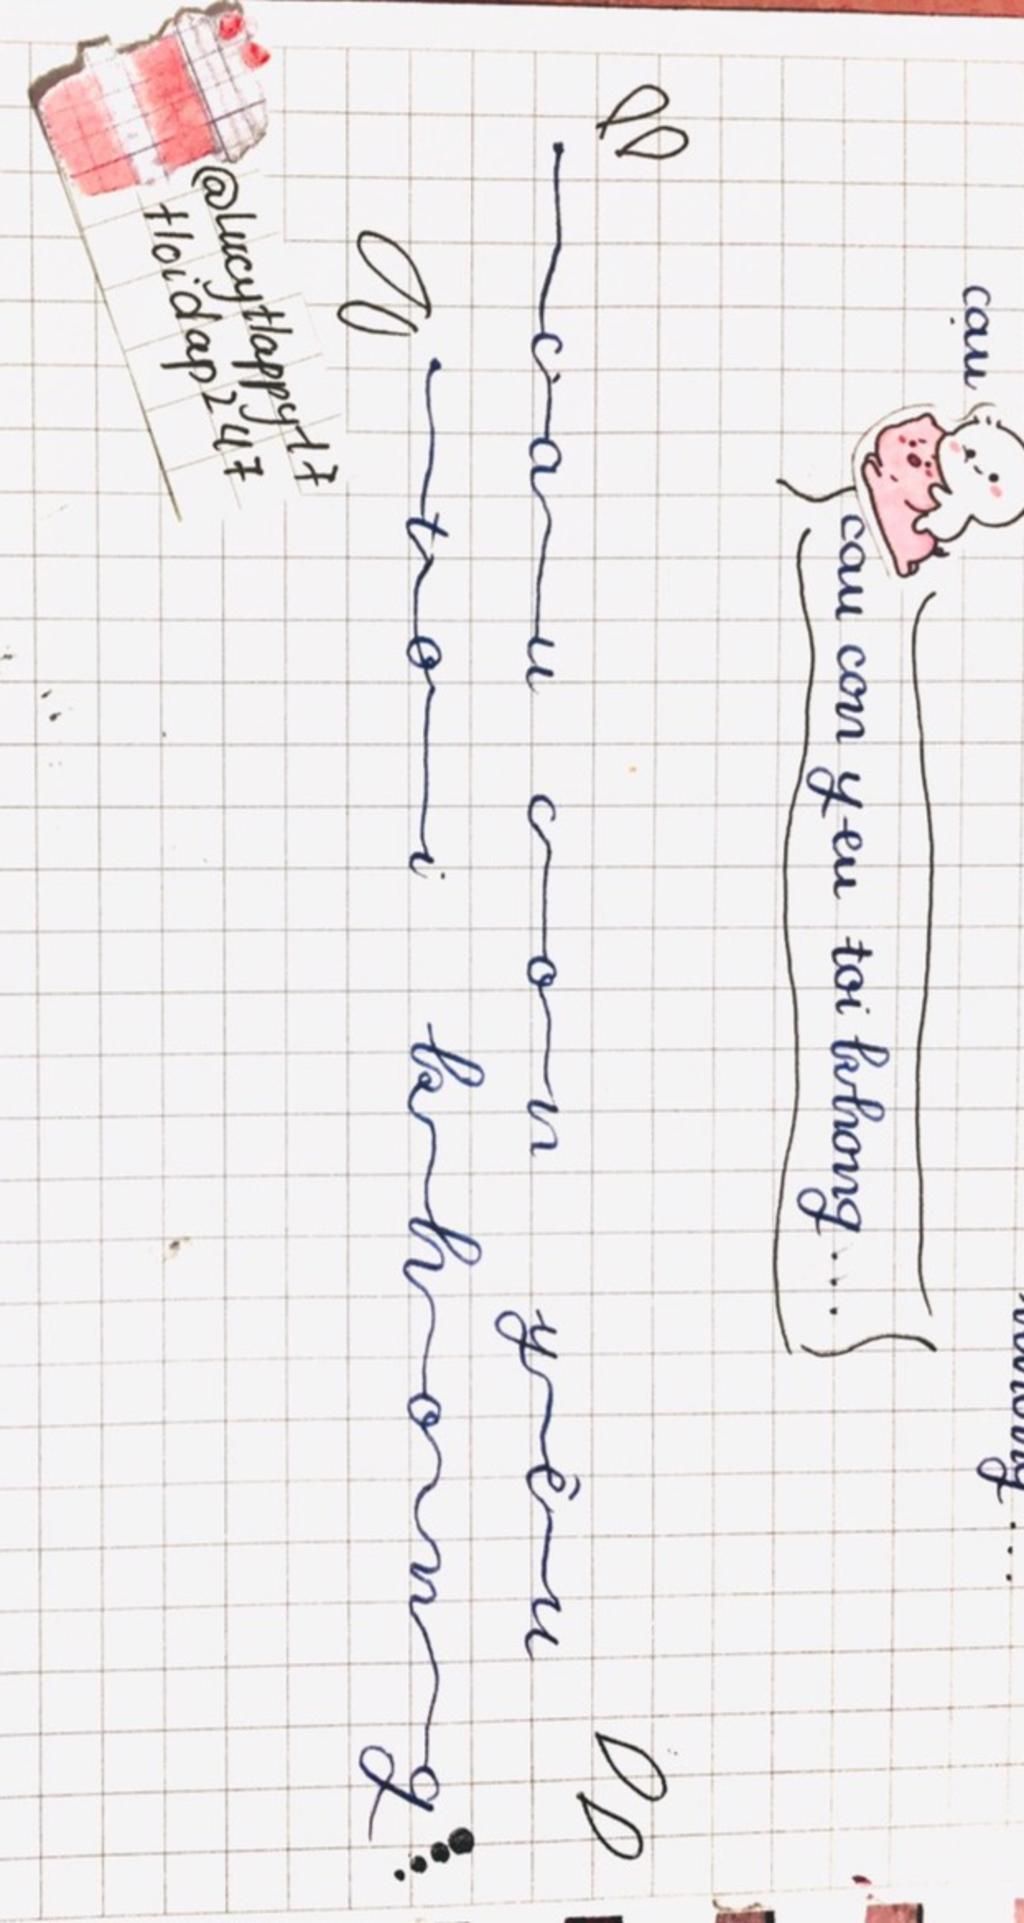 cau
khong...
cau con yeu toi khong....
cau con yêu
toi khong....
@LucyHappy17
Hoidap247